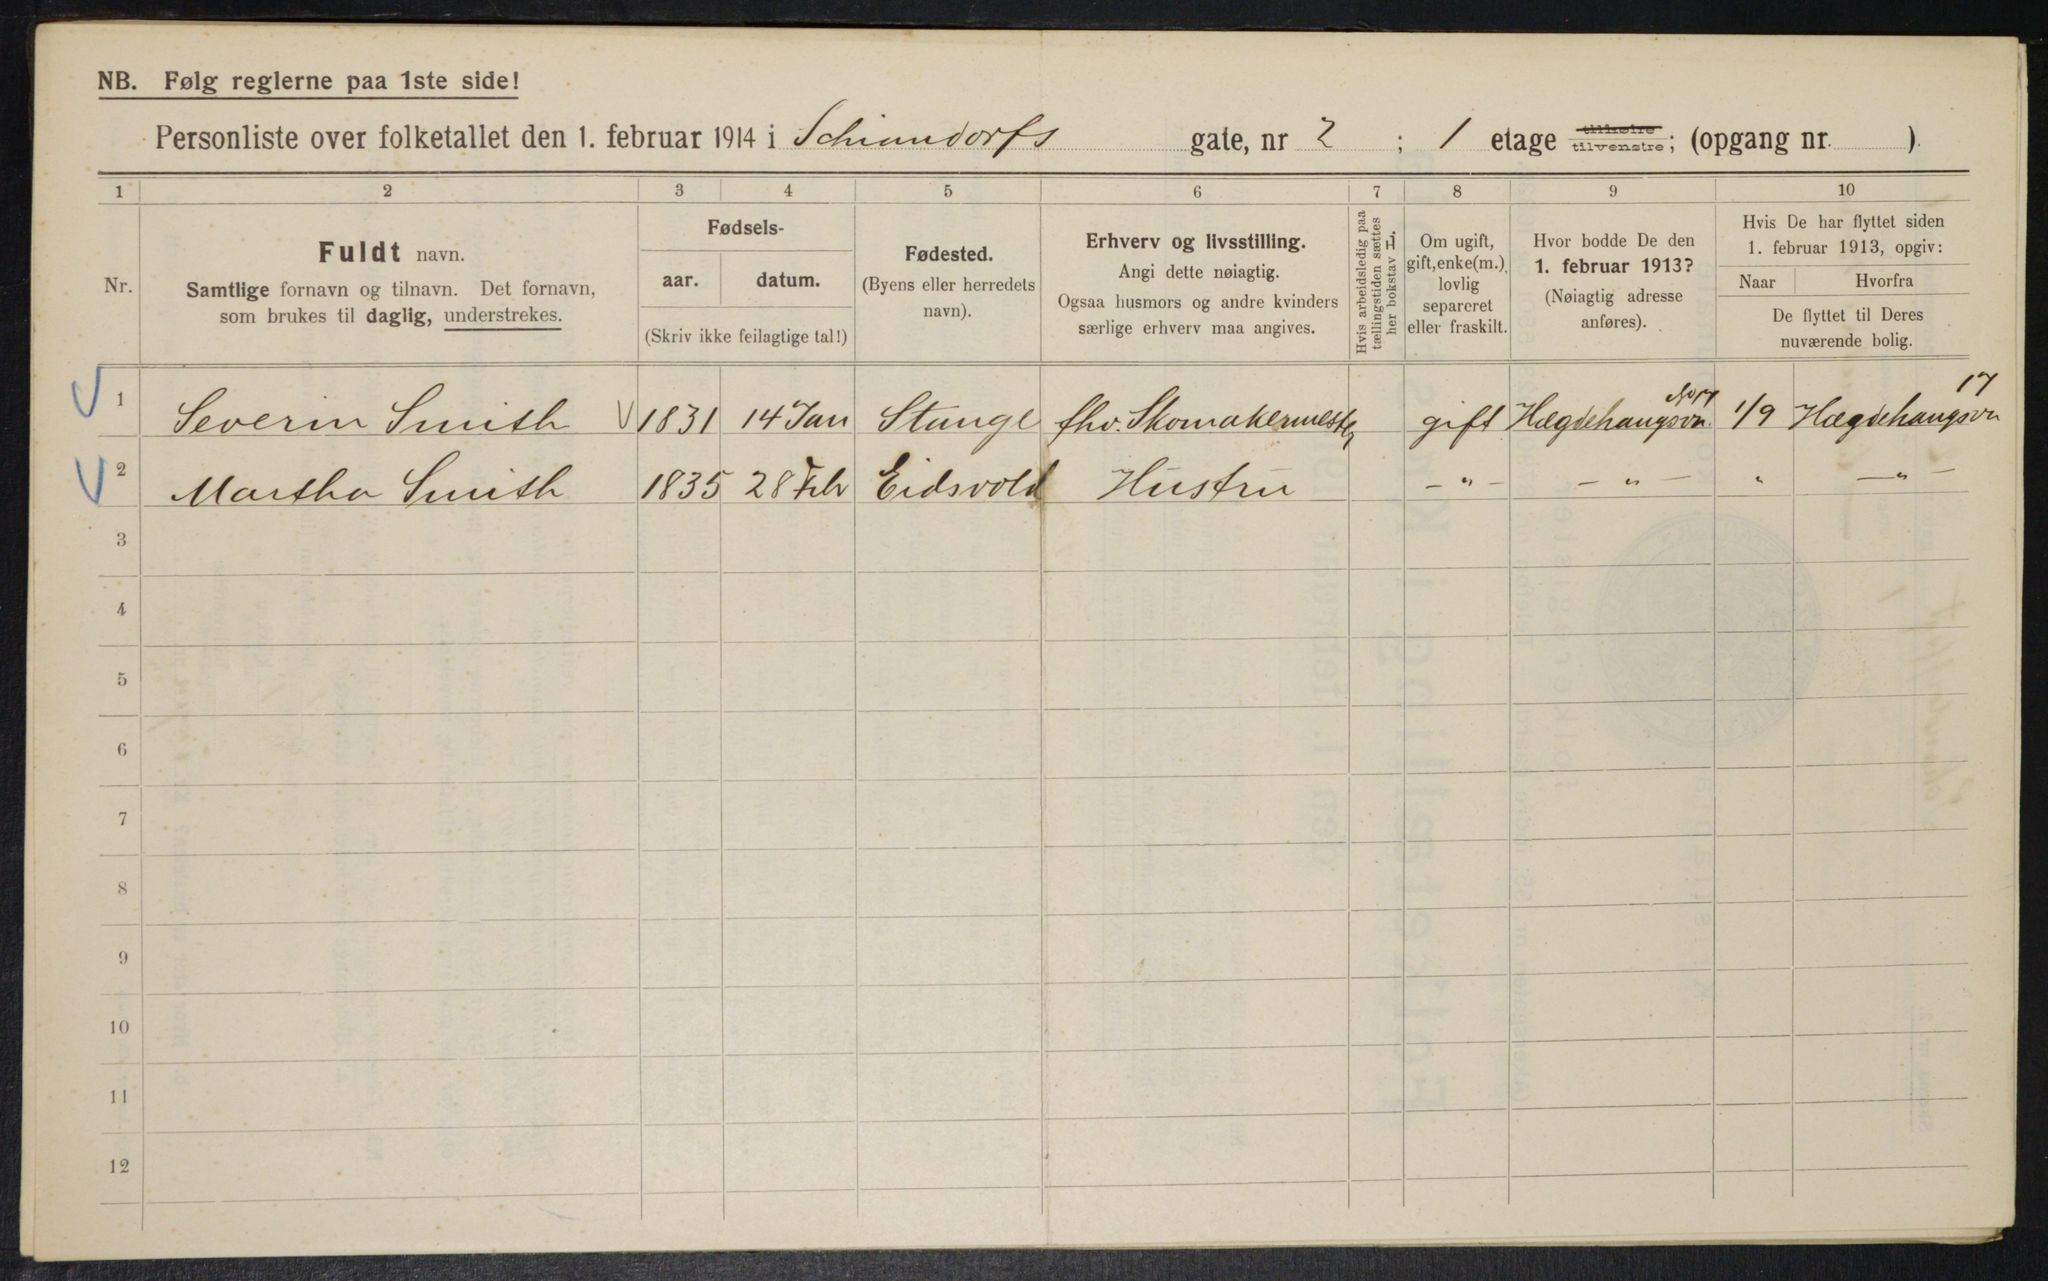 NB. Følg reglerne paa 1ste side!
Personliste over folketallet den 1. februar 1914 i Schiøndorfs gate, nr 2 ; 1 etage tilhøire tilvenstre; (opgang nr. ).
1 2 3 4 5 6 7 8 9 10
Nr.
Fuldt navn.
Samtlige fornavn og tilnavn. Det fornavn,
som brukes til daglig, understrekes.
Fødsels-
aar. datum.
(Skriv ikke feilagtige tal!)
Fødested.
(Byens eller herredets
navn).
Erhverv og livsstilling.
Angi dette nøiagtig.
Ogsaa husmors og andre kvinders
særlige erhverv maa angives.
Hvis arbeidsledig paa
tællingstiden sættes
her bokstav L.
Om ugift,
gift, enke(m.),
lovlig
separeret
eller fraskilt.
Hvor bodde De den
1. februar 1913?
(Nøiagtig adresse
anføres).
Hvis De har flyttet siden
1. februar 1913, opgiv:
Naar Hvorfra
De flyttet til Deres
nuværende bolig.
1 Severin Smith 1831 14 Jan Stange fhv. Skomakermester gift Hægdehaugsvn. No 17 1/9 Hægdehaugsvn 17
2 Martha Smith 1835 28 Feb Eidsvold Hustru - " - - " - " - " -
3
4
5
6
7
8
9
10
11
12